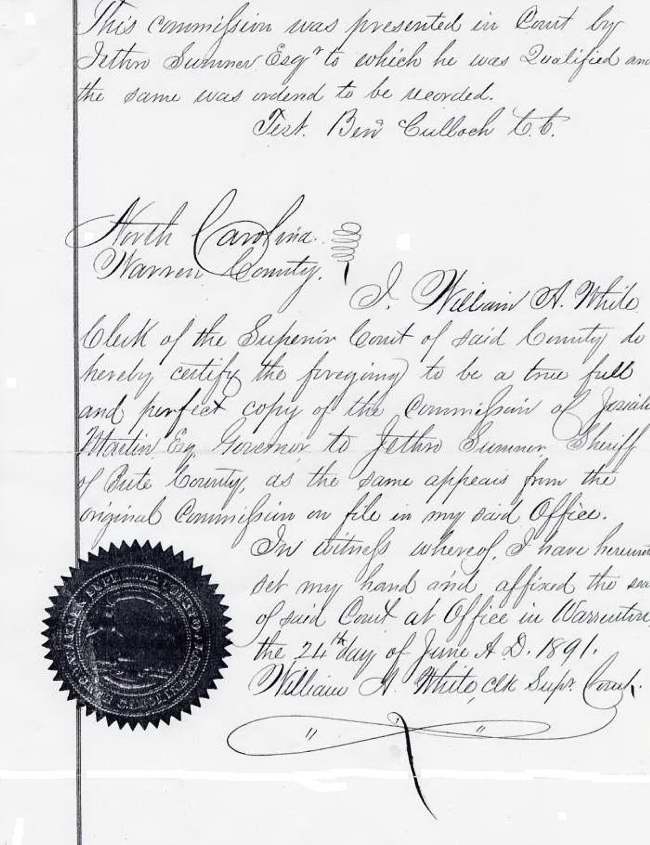 This commission was presented in Court by
Jethro Sumner Esqr to which he was Qualified and
the same was orderd to be recorded.
Test. Benn Culloch C.C.
North Carolina.
Warren County.
I, William A. White
Clerk of the Superior Court of said County do
hereby certify the foregoing to be a true full
and perfect copy of the Commission of Josiah
Martin Esq Governor to Jethro Sumner Sheriff
of Bute County, as the same appears from the
original Commission on file in my said Office.
In witness whereof, I have hereunto
set my hand and affixed the seal
of said Court at Office in Warrenton,
the 24th day of June A.D. 1891.
William A. White, Clk Supr. Court.